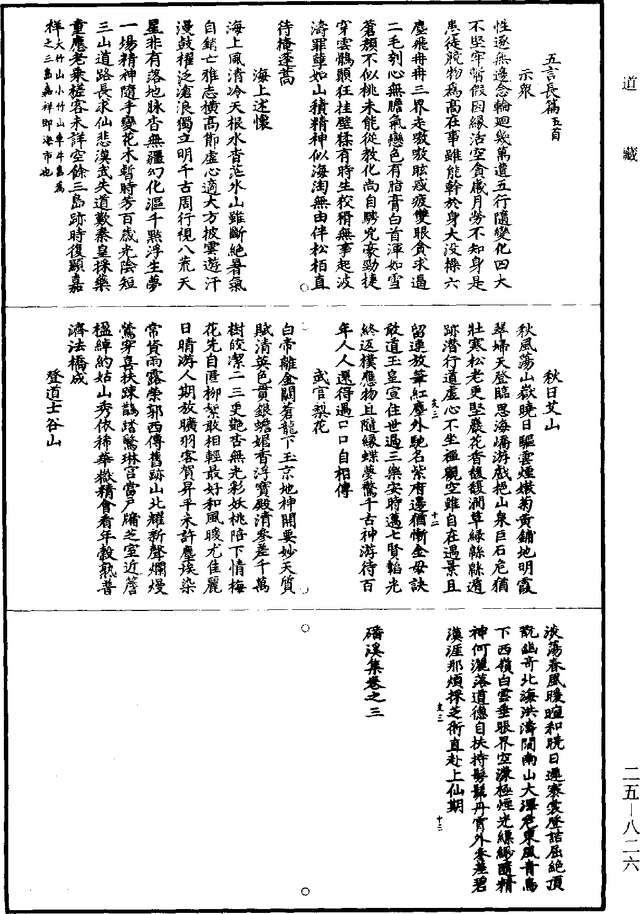 道藏
五言長篇五首
示衆
性逐無邊念輪迴幾萬遭五行隨變化四大
不堅牢暫假因緣活空貪歲月勞不知身是
患徒脫物爲高在事雖能幹於身大沒操六
塵飛冉冉三界走嗷嗷眩惑疲雙眼貪求過
二毛剜心無膽氣戀色有脂膏白首渾如雪
蒼顏不似桃未能從教化尚自騁兇豪勁捷
穿雲鶻顒狂挂壁猱有時生狡猾無事起波
濤罪孽如山積精神似海淘無由伴松栢直
待掩蓬蒿
海上述懷
海上風清冷天根水杳茫氷山雖斷絕暑氣
自銷亡雅志橫高節虛心適大方披雲遊汗
漫鼓櫂泛滄浪獨立明千古周行視八荒天
星非有落地脉杳無疆幻化漚千點浮生夢
一場精神隨手變花木暫時芳百歲光陰短
三山道路長求仙悲漢武失道歎秦皇採藥
童應老乘槎客未詳空餘三島跡時復顯嘉
祥大竹山小竹山車牛島爲
之三島嘉祥即海市也
秋日艾山
秋風蕩山嶽曉日驅雲煙嫩菊黃鋪地明霞
翠婦天登臨思海嶠游戲挹山泉巨石危猶
壯寒松老更堅巖花香馥馥澗草綠緜緜逍
跡潛行道虛心不坐禪觀空雖自在過景且
留連放筆紅塵外馳名紫府邊猶慚金母訣
敢道玉皇宣住世過三樂安時邁七賢韜光
終返樸應物且隨緣蝶夢驚千古神游待百
年人人還得遇口口自相傳
武官梨花
白帝離金闕蒼龍下玉京地神開要妙天質
賦清英色貫銀蟾媚香浮寶殿清參差千萬
樹皎潔二三更艷杳無光彩妖桃陪下情梅
花先自匿柳絮敢相輕最好和風暖尤佳麗
日晴游人期放曠羽客賀昇平未許塵埃染
常資雨露榮郭西傳舊跡山北耀新聲爛熳
鶯穿喜扶踈鵲踏驚琳宮當戶牖芝室近簷
楹綽約姑山秀依稀華嶽精會看年穀熟普
濟法橋成
登道士谷山
淡蕩春風暖暄和曉日遲褰裳登詰屈絕頂
翫幽奇北海洪濤闊南山大澤危東風青鳥
下西嶺白雲垂眼界空濛極煙光縹緲隨精
神何灑落道德自扶持髣髴丹霄外參差碧
漢涯那煩採芝術直赴上仙期
磻溪集卷之三
友三
十二
友三
十三
二五—八二六